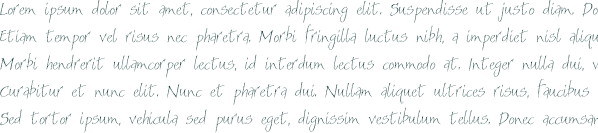 Lorem ipsum dolor sit amet, consectetur adipiscing elit. Suspendisse ut justo diam. Do
Etiam tempor vel risus nec pharetra. Morbi fringilla luctus nibh, a imperdiet nisl aliqu
Morbi hendrerit ullamcorper lectus, id interdum lectus commodo at. Integer nulla dui, v
Curabitur et nunc elit. Nunc et pharetra dui. Nullam aliquet ultrices risus, faucibus
Sed tortor ipsum, vehicula sed purus eget, dignissim vestibulum tellus. Donec accumsan